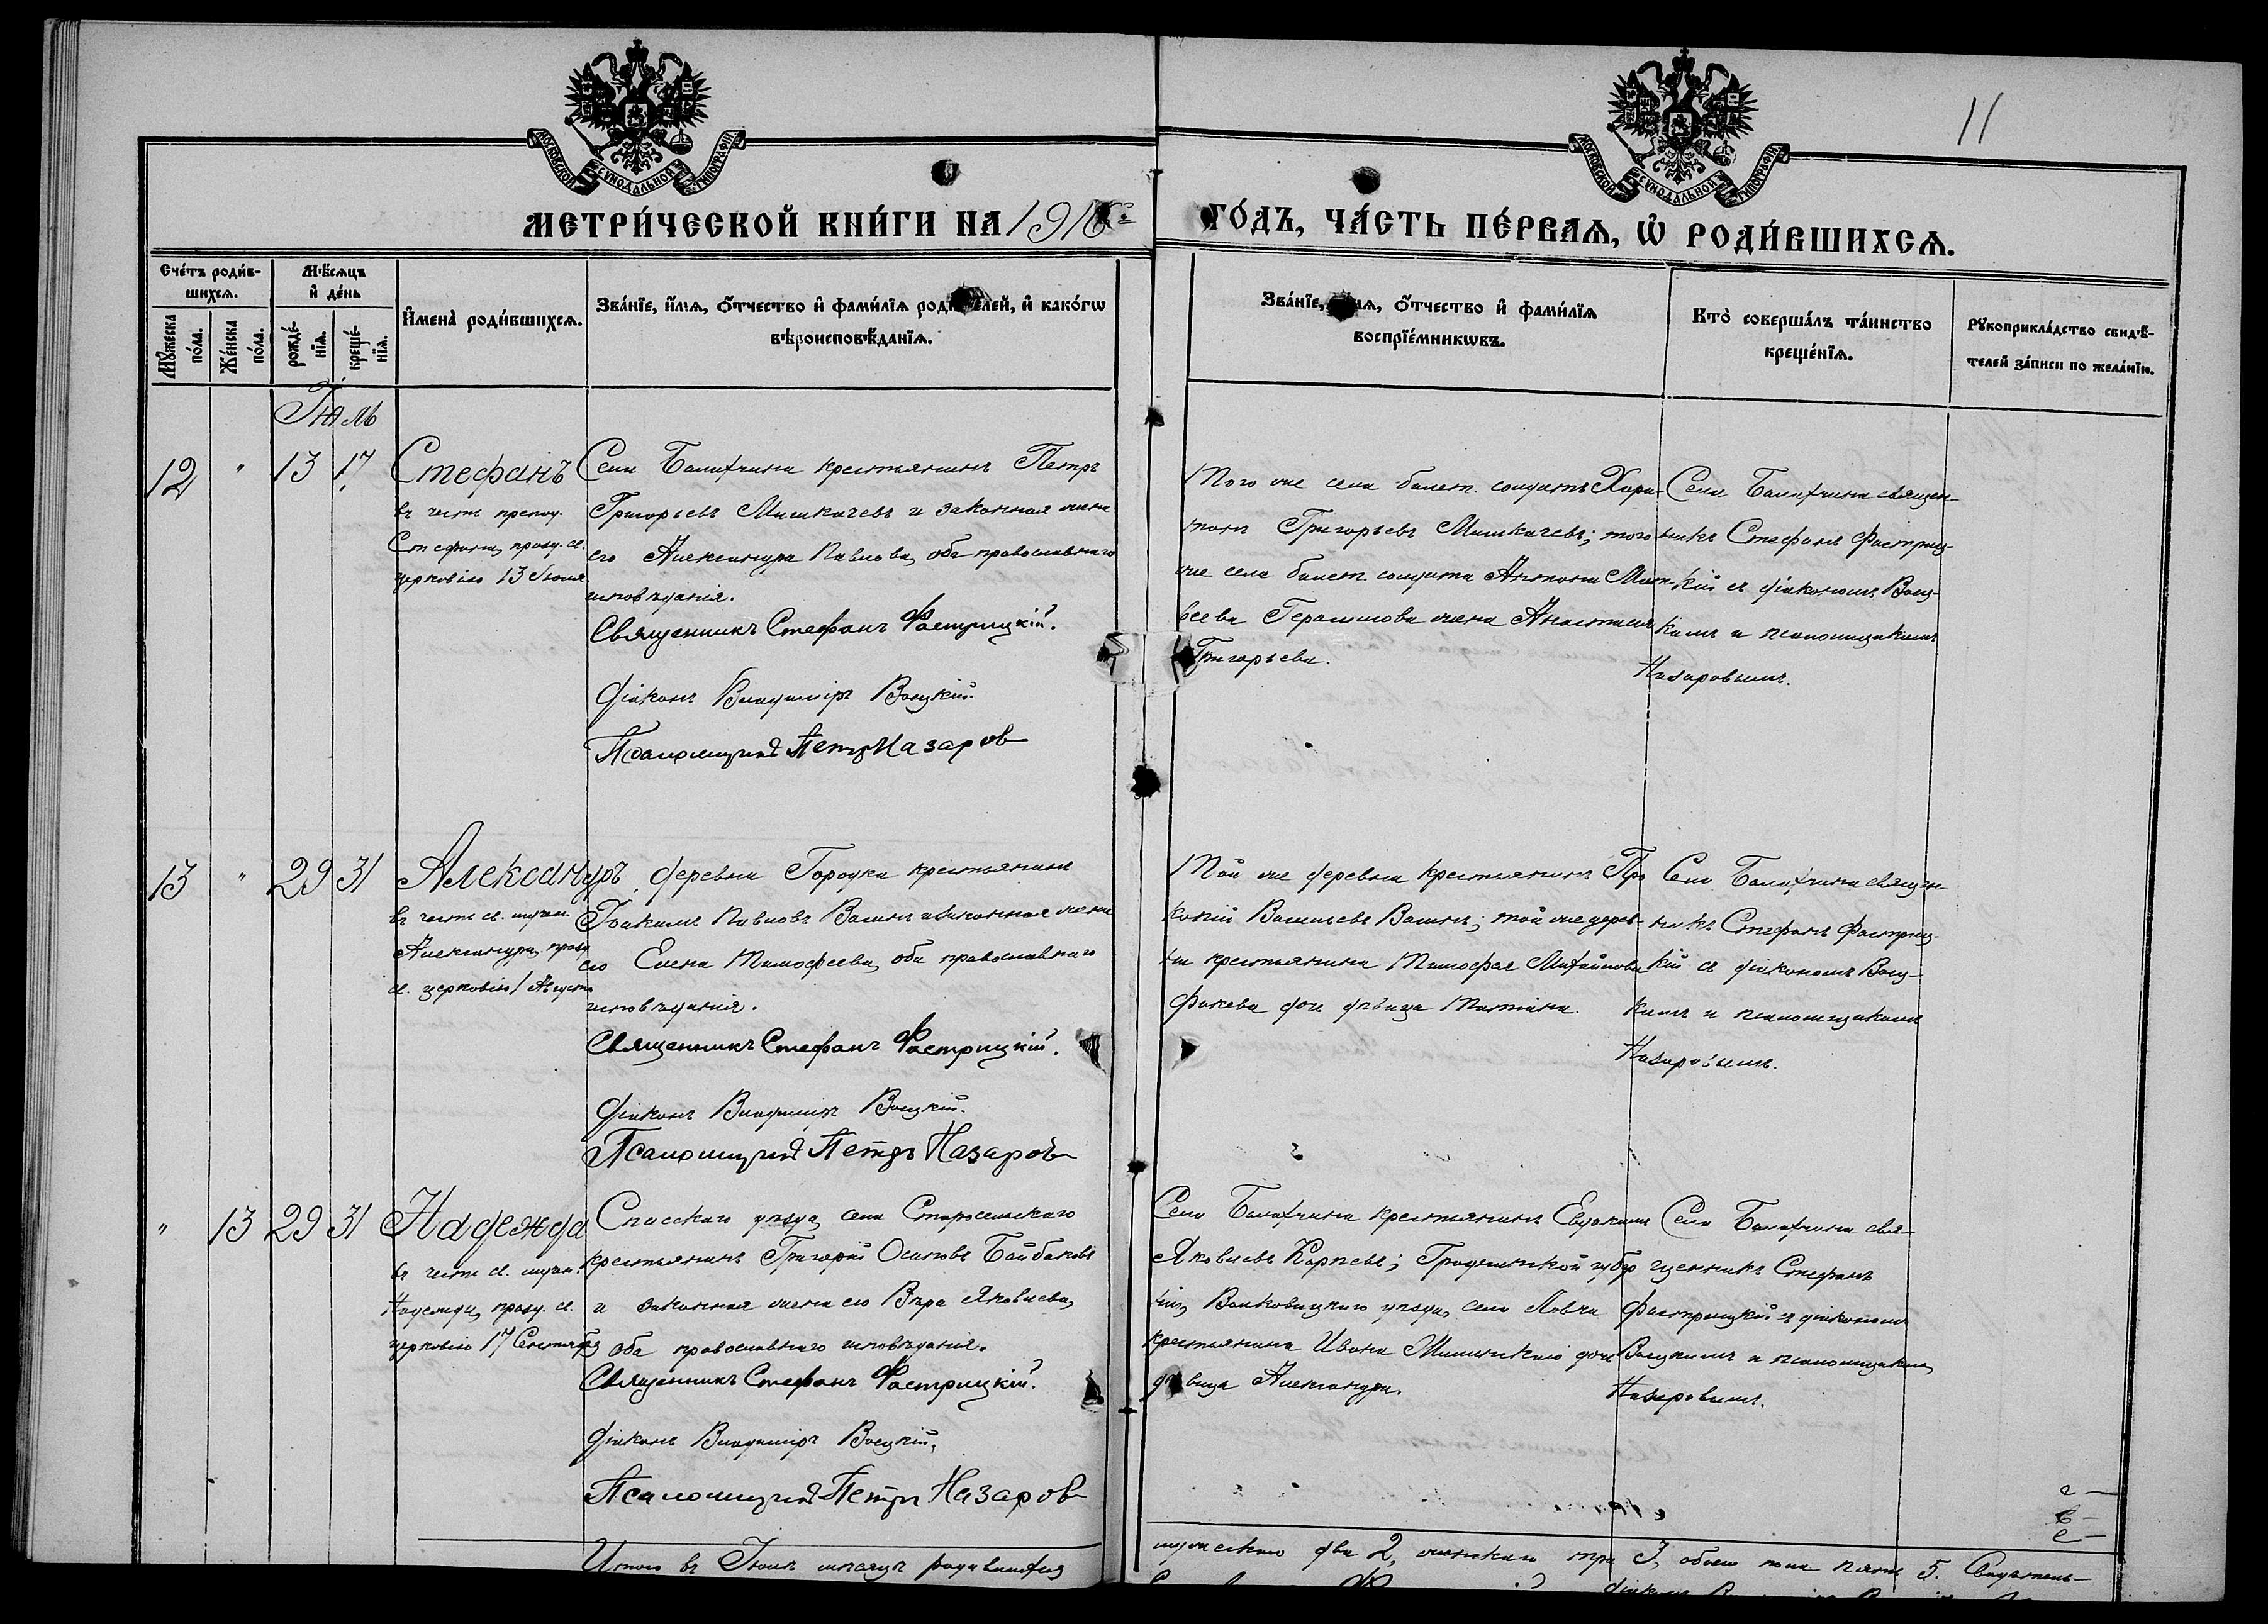 11
МОСКОВСКОЙ СѴНОДАЛЬНОЙ ТИПОГРАФІИ
МОСКОВСКОЙ СѴНОДАЛЬНОЙ ТИПОГРАФІИ
МЕТРИ́ЧЕСКОЙ КНИ́ГИ НА 1916 ГО́ДЪ, ЧА́СТЬ ПЕ́РВАѦ, Ѡ҆ РОДИ́ВШИХСѦ.
Сче́тъ роди́в-
шихсѧ.
Мѣ́сѧцъ
и҆ де́нь
Мꙋ́жеска
по́ла.
Же́нска
по́ла.
рожде́-
нїѧ.
креще́-
нїѧ.
И҆мена̀ роди́вшихсѧ.
Зва́нїе, и҆́мѧ, ѻ҆́тчество и҆ фами́лїѧ роди́телей, и҆ како́гѡ
вѣроисповѣ́данїѧ.
Зва́нїе, и҆́мѧ, ѻ҆́тчество и҆ фами́лїѧ
воспрїе́мникѡвъ.
Кто̀ соверша́лъ та́инство
креще́нїѧ.
Рꙋкоприкла́дство свидѣ́-
телей за́писи по жела́нїю.
Іюль
12 " 13 17 Стефанъ
въ честь препод.
Стефана, празд. св.
церковію 13 Іюля
Села Балахчина крестьянинъ Петръ
Григорьевъ Мишкачевъ и законная жена
его Александра Павлова, оба православнаго
исповѣданія.
Священникъ Стефанъ Фастрицкій.
Діаконъ Владиміръ Воецкій.
Псаломщикъ Петръ Назаровъ
Того же села билет. солдатъ Хари-
тонъ Григорьевъ Мишкачевъ; того
же села билет. солдата Антона Мат-
веева Герасимова жена Анастасія
Григорьева.
Села Балахчина священ-
никъ Стефанъ Фастриц-
кій съ діакономъ Воец-
кимъ и псаломщикомъ
Назаровымъ.
13 " 29 31 Александръ
въ честь св. мучен.
Александра, празд.
св. церковію 1 Августа
деревни Городка крестьянинъ
Іоакимъ Павловъ Вашнъ и законная жена
его Елена Тимофеева, оба православнаго
исповѣданія.
Священникъ Стефанъ Фастрицкій.
Діаконъ Владиміръ Воецкій.
Псаломщикъ Петръ Назаровъ
Той же деревни крестьянинъ Про
копій Васильевъ; той же дерев-
ни крестьянина Тимофея Михайлова
дочь дѣвица Татіана.
Села Балахчина священ
никъ Стефанъ Фастриц-
кій съ діакономъ Воец-
кимъ и псаломщикомъ
Назаровымъ.
" 13 29 31 Надежда
въ честь св. мучен.
Надежды, празд. св.
церковію 17 Сентября
Спасскаго уѣзда, села Старосельскаго
крестьянинъ Григорій Осиповъ Байбаковъ
и законная жена его Вѣра Яковлева,
оба православнаго исповѣданія.
Священникъ Стефанъ Фастрицкій.
Діаконъ Владиміръ Воецкій,
Псаломщикъ Петръ Назаровъ
Села Балахчина крестьянинъ Евдокимъ
Яковлевъ Карпевъ; Гродненской губер
ніи, Волковицкаго уѣзда, села
крестьянина Ивана дочь
дѣвица Александра.
Села Балахчина свя-
щенникъ Стефанъ
Фастрицкій съ діакономъ
Воецкимъ и псаломщикомъ
Назаровымъ.
Итого въ Іюлѣ мѣсяцѣ родившихся
мужескаго два 2, женскаго три 3, обоего пола пять 5.